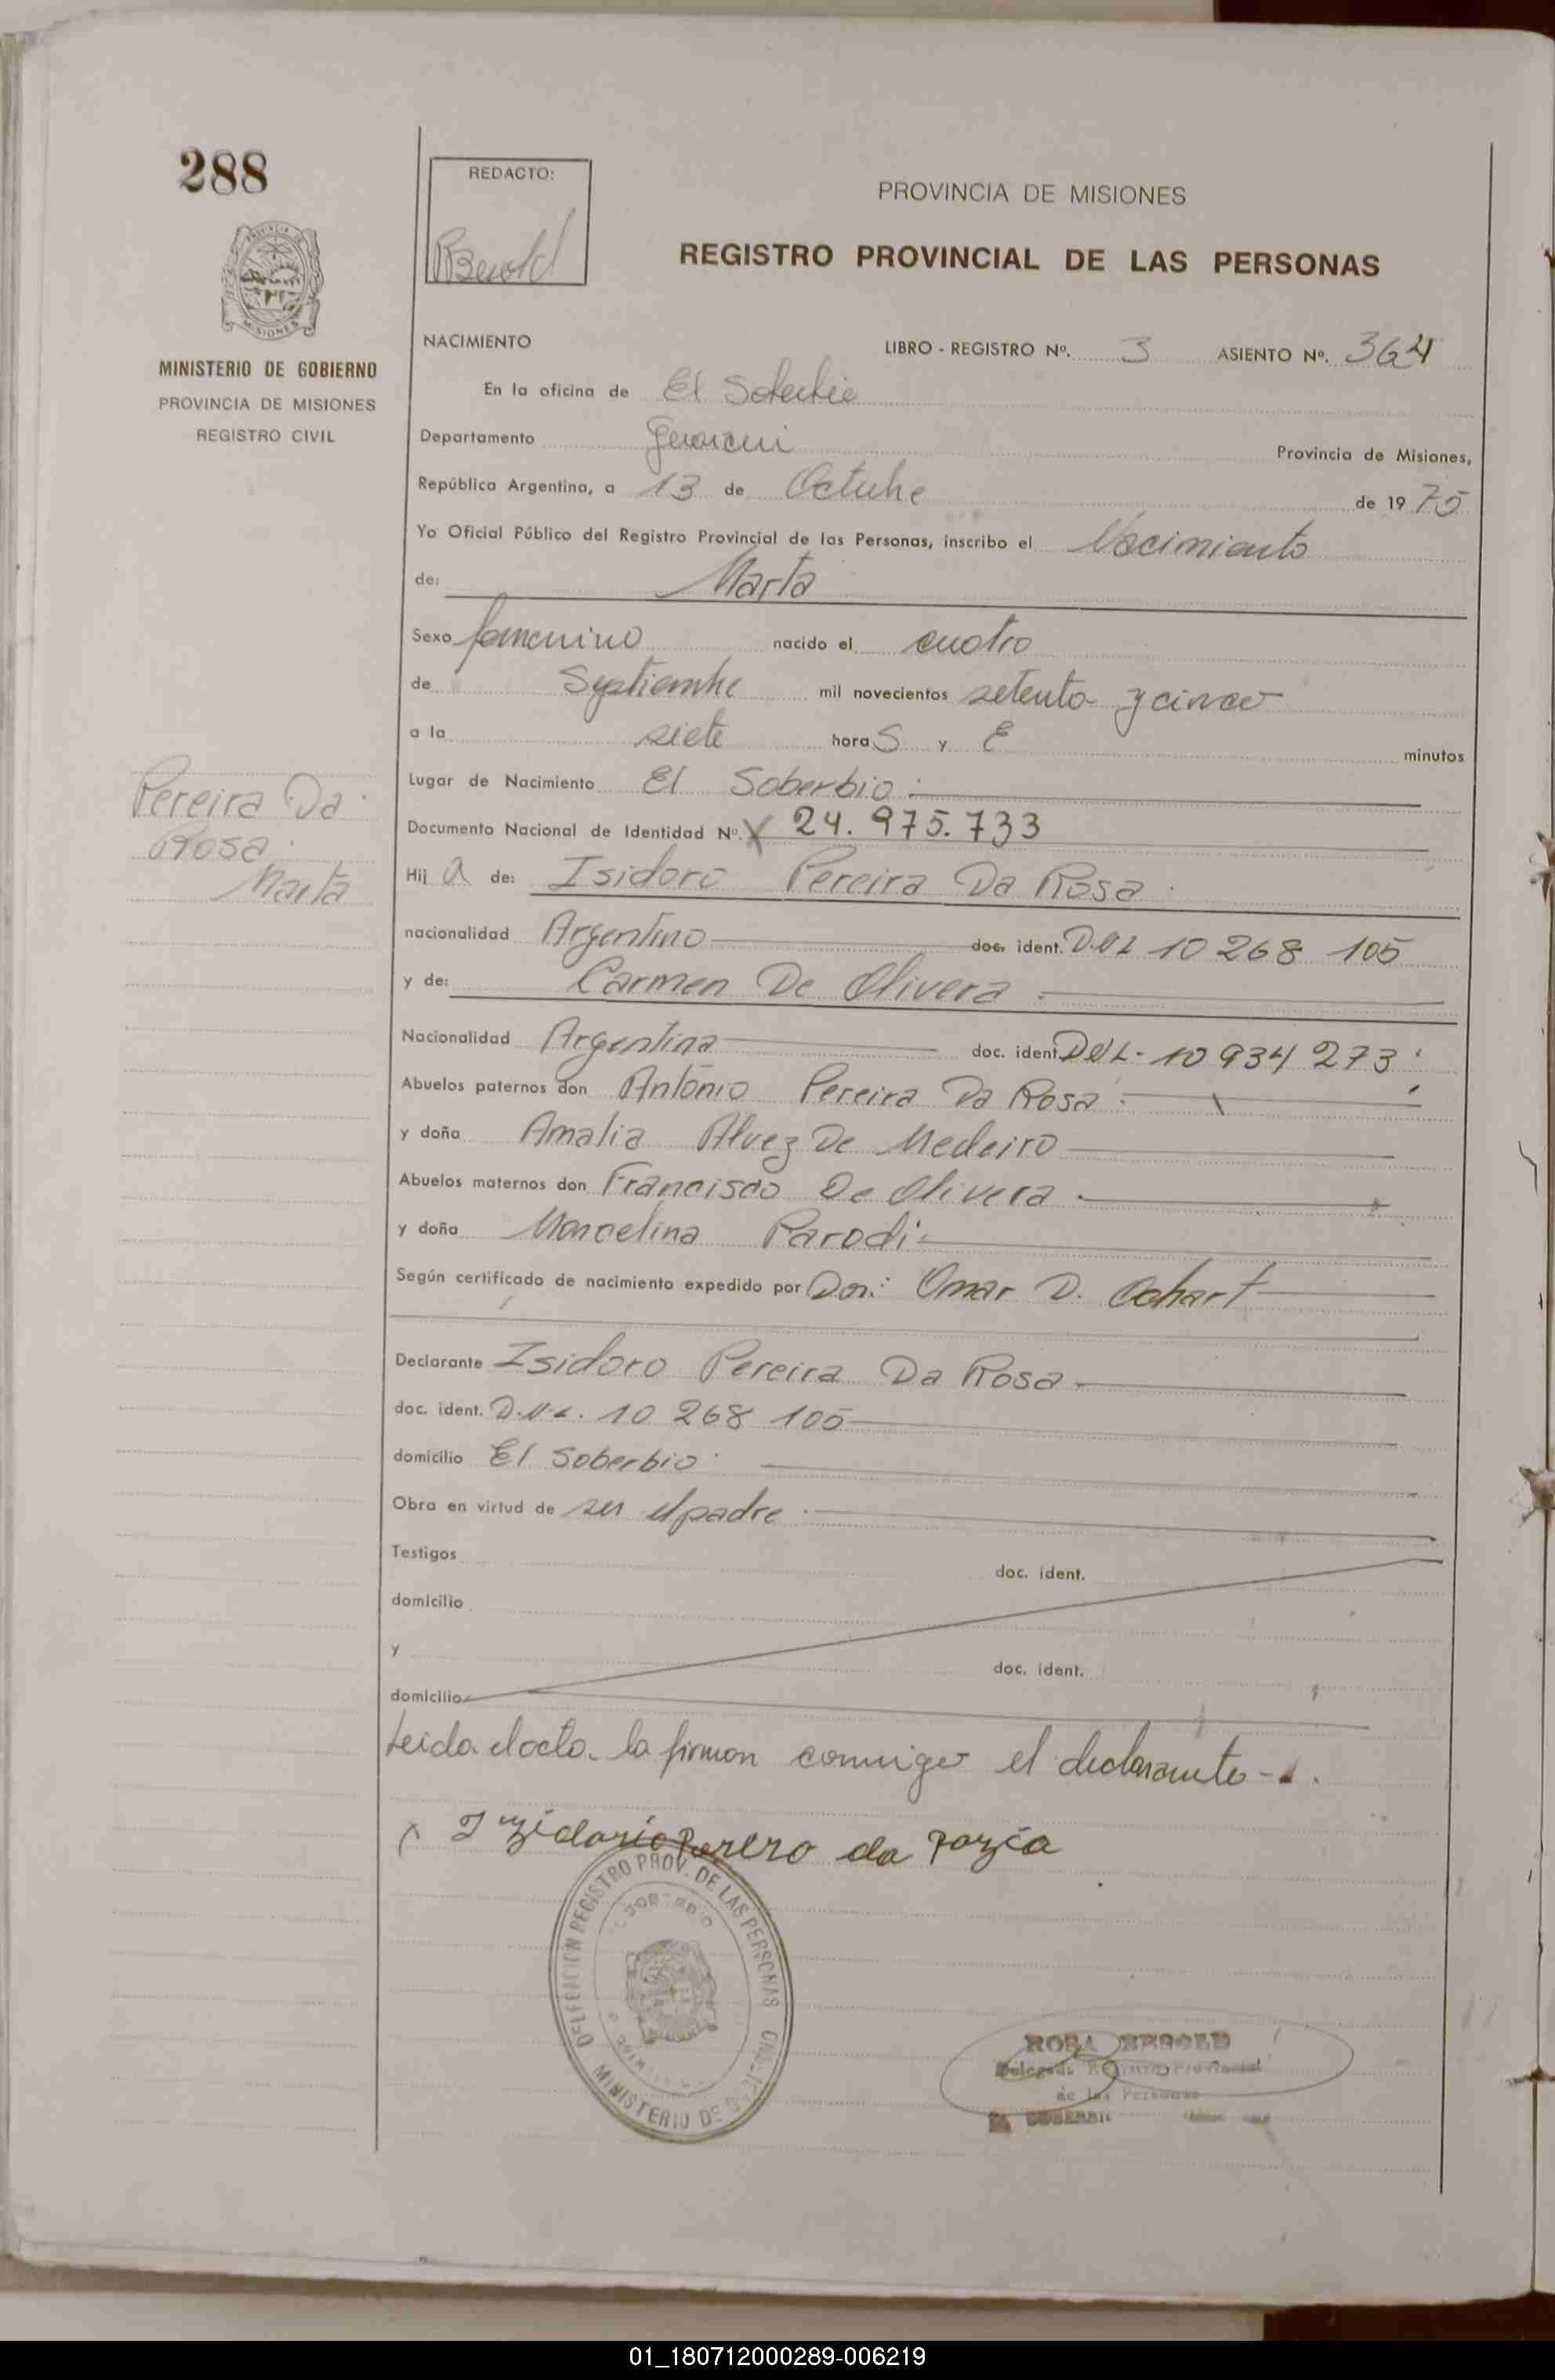 288
REDACTO:
Berold
PROVINCIA DE MISIONES
REGISTRO PROVINCIAL DE LAS PERSONAS
MISIONES
MINISTERIO DE GOBIERNO
PROVINCIA DE MISIONES
REGISTRO CIVIL
NACIMIENTO LIBRO - REGISTRO Nº. 3 ASIENTO Nº. 364
En la oficina de El Soberbio
Departamento Guarani Provincia de Misiones,
República Argentina, a 13 de Octubre de 1975
Yo Oficial Público del Registro Provincial de las Personas, inscribo el Nacimiento
de: Marta
Sexo femenino nacido el cuatro
de Septiembre mil novecientos setenta y cinco
a la siete horaS y minutos
Lugar de Nacimiento El Soberbio
Documento Nacional de Identidad Nº. 24.975.733
Pereira Da
Rosa
Marta
Hij a de: Isidoro Pereira Da Rosa
nacionalidad Argentino doc. ident. D.N.I 10 268 105
y de: Carmen De Olivera
Nacionalidad Argentina doc. ident. DNI- 10 934 273
Abuelos paternos don Antonio Pereira Da Rosa
y doña Amalia Alvez De Medeiro
Abuelos maternos don Francisco De Olivera
y doña Marcelina Parodi
Según certificado de nacimiento expedido por Omar D.
Declarante Isidoro Pereira Da Rosa
doc. ident. D.N.I. 10 268 105
domicilio El Soberbio
Obra en virtud de ser el padre
Testigos doc. ident.
domicilio
y doc. ident.
domicilio
Leida el acta la firman conmigo el declarante
DELEGACION REGISTRO PROV. DE LAS PERSONAS
MINISTERIO DE
ROSA BEROLD
Delegada Registro Provincial
de las Personas
EL SOBERBIO
01_180712000289-006219